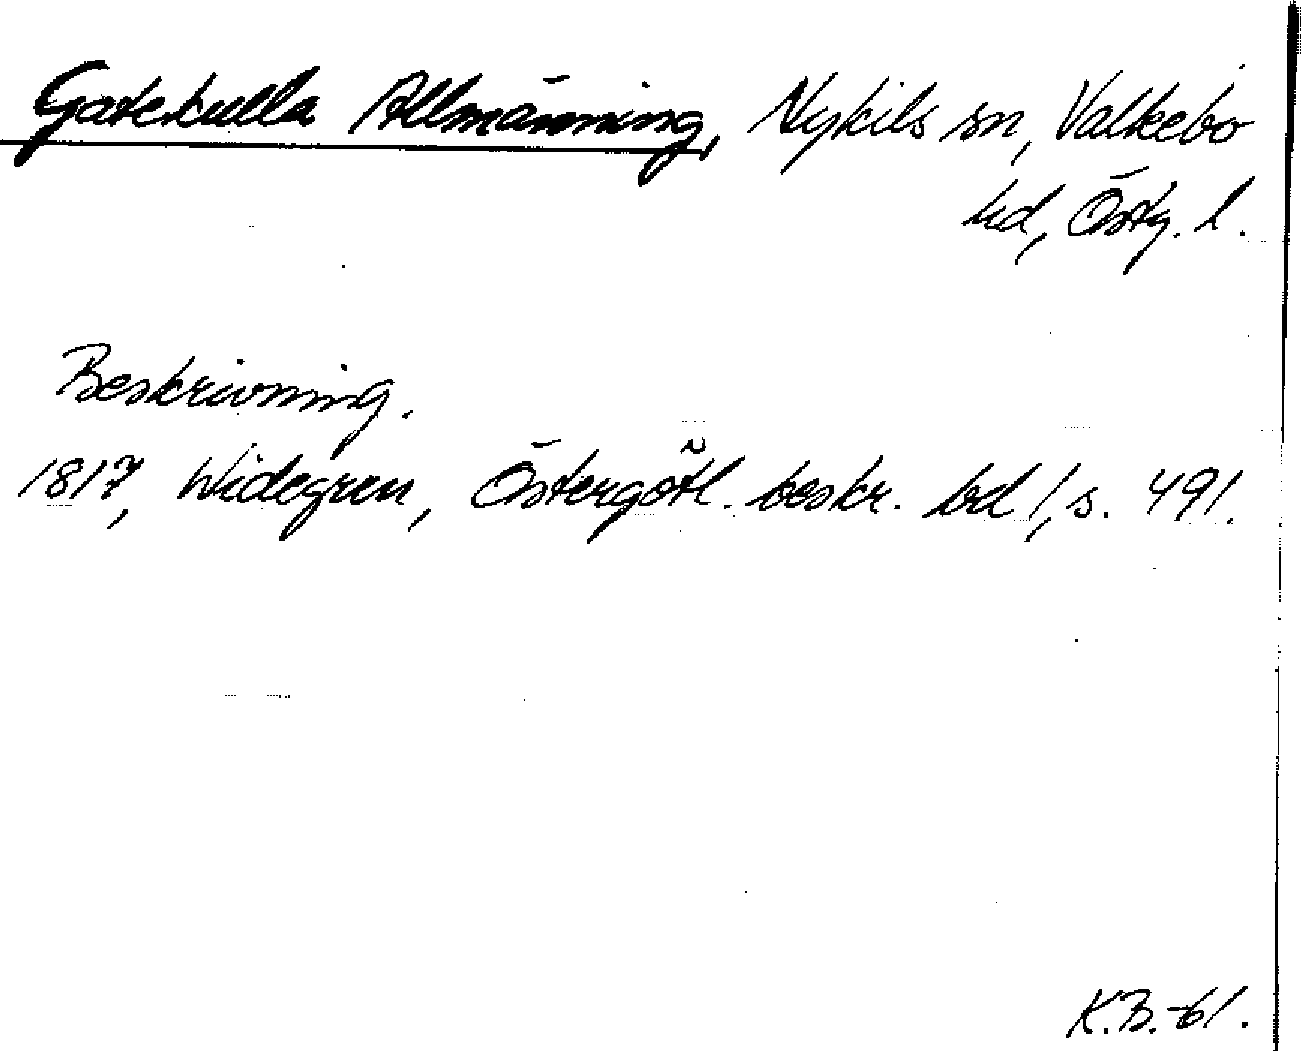 Gatekulla Allmänning, Nykils sn, Valkebo
hd, Östg. l.
Beskrivning.
1817, Widegren, Östergötl. beskr. bd 1, s. 491.
K.B. -61.